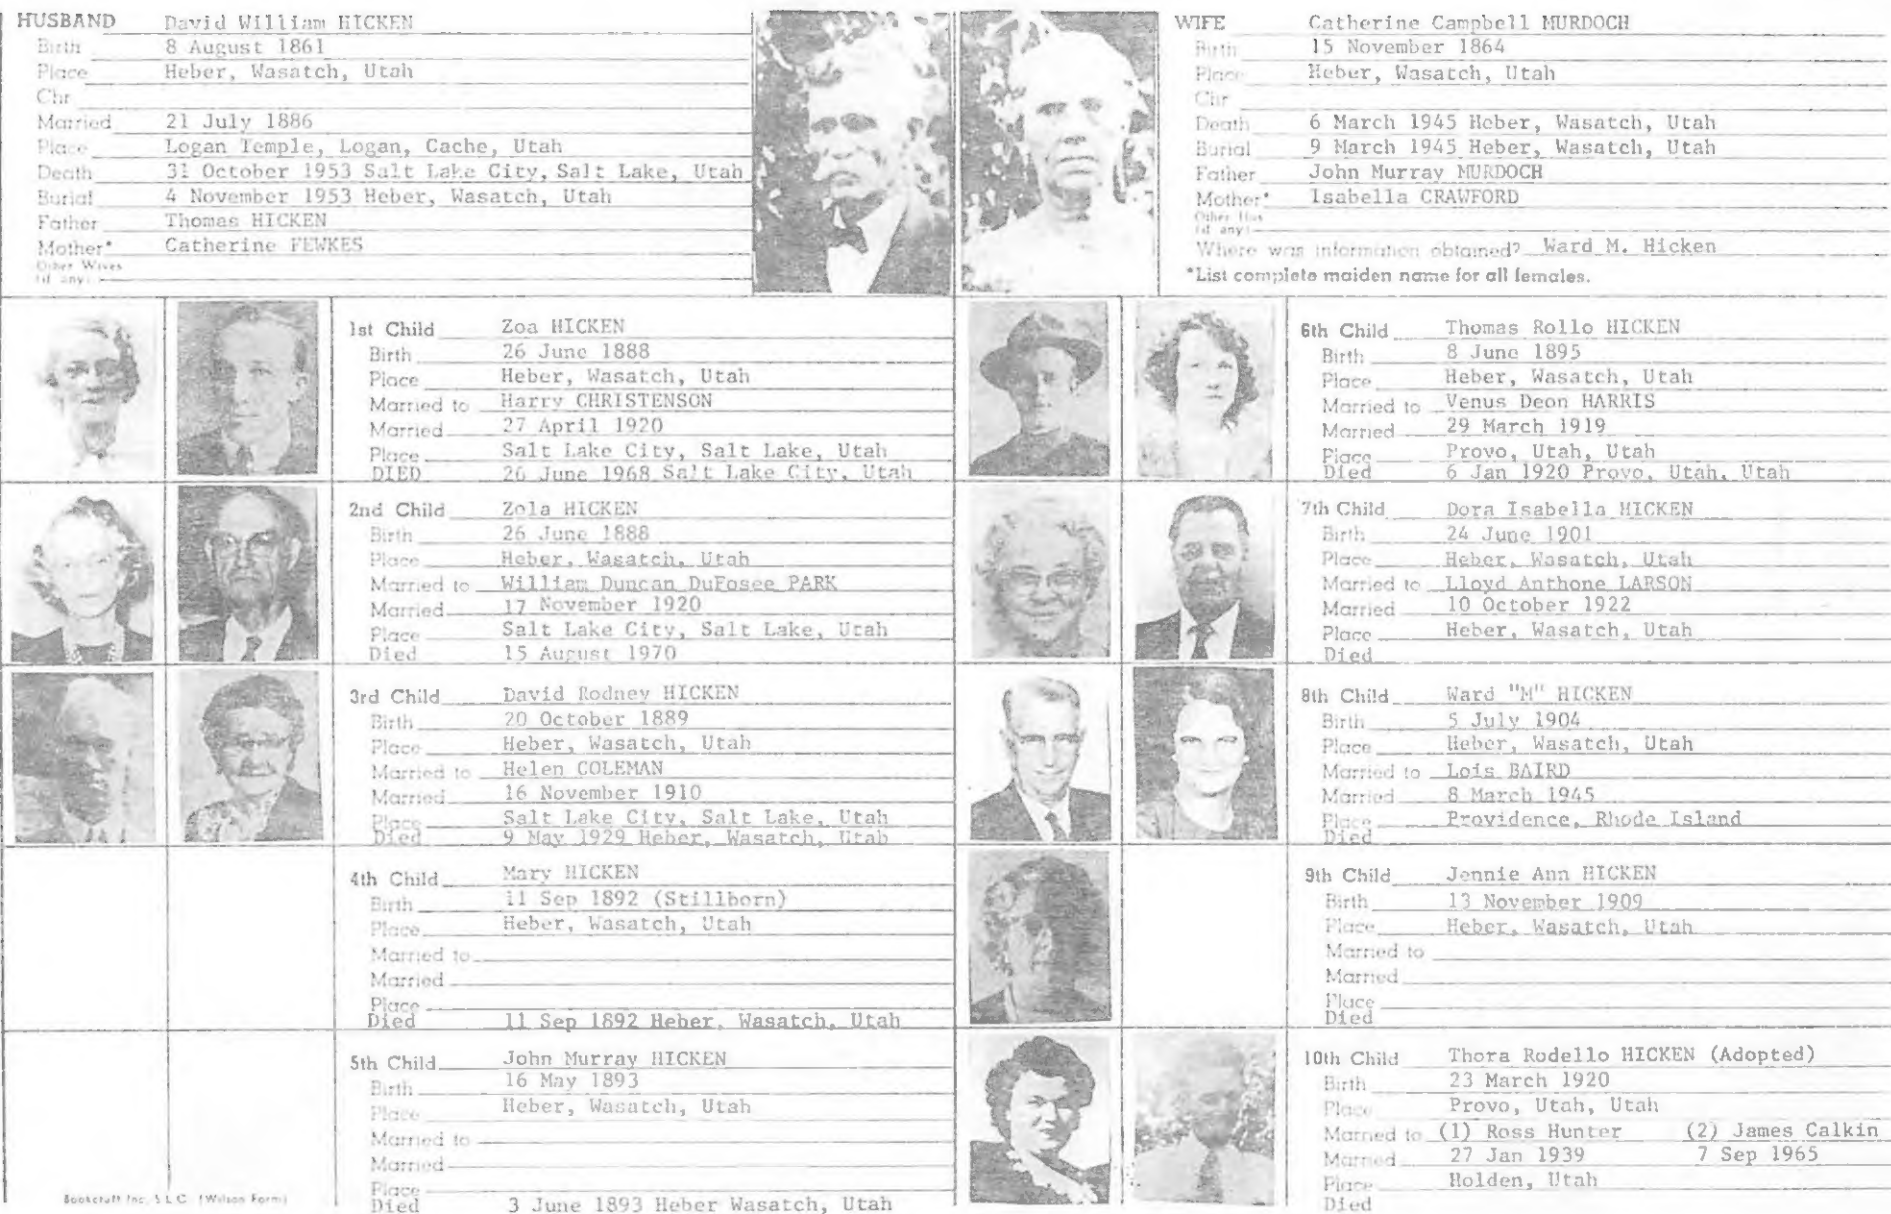 HUSBAND David William HICKEN
Birth 8 August 1861
Place Heber, Wasatch, Utah
Chr
Married 21 July 1886
Place Logan Temple, Logan, Cache, Utah
Death 31 October 1953 Salt Lake City, Salt Lake, Utah
Burial 4 November 1953 Heber, Wasatch, Utah
Father Thomas HICKEN
Mother* Catherine FEWKES
Other Wives
(if any)
WIFE Catherine Campbell MURDOCH
Birth 15 November 1864
Place Heber, Wasatch, Utah
Chr
Death 6 March 1945 Heber, Wasatch, Utah
Burial 9 March 1945 Heber, Wasatch, Utah
Father John Murray MURDOCH
Mother* Isabella CRAWFORD
Other Hus
(if any)
Where was information obtained? Ward M. Hicken
*List complete maiden name for all females.
1st Child Zoa HICKEN
Birth 26 June 1888
Place Heber, Wasatch, Utah
Married to Harry CHRISTENSON
Married 27 April 1920
Place Salt Lake City, Salt Lake, Utah
DIED 26 June 1968 Salt Lake City, Utah
2nd Child Zola HICKEN
Birth 26 June 1888
Place Heber, Wasatch, Utah
Married to William Duncan DuFosee PARK
Married 17 November 1920
Place Salt Lake City, Salt Lake, Utah
Died 15 August 1970
3rd Child David Rodney HICKEN
Birth 20 October 1889
Place Heber, Wasatch, Utah
Married to Helen COLEMAN
Married 16 November 1910
Place Salt Lake City, Salt Lake, Utah
Died 9 May 1929 Heber, Wasatch, Utah
4th Child Mary HICKEN
Birth 11 Sep 1892 (Stillborn)
Place Heber, Wasatch, Utah
Married to
Married
Place
Died 11 Sep 1892 Heber, Wasatch, Utah
5th Child John Murray HICKEN
Birth 16 May 1893
Place Heber, Wasatch, Utah
Married to
Married
Place
Died 3 June 1893 Heber Wasatch, Utah
Bookcraft Inc. S.L.C. (Wilson Form)
6th Child Thomas Rollo HICKEN
Birth 8 June 1895
Place Heber, Wasatch, Utah
Married to Venus Deon HARRIS
Married 29 March 1919
Place Provo, Utah, Utah
Died 6 Jan 1920 Provo, Utah, Utah
7th Child Dora Isabella HICKEN
Birth 24 June 1901
Place Heber, Wasatch, Utah
Married to Lloyd Anthone LARSON
Married 10 October 1922
Place Heber, Wasatch, Utah
Died
8th Child Ward "M" HICKEN
Birth 5 July 1904
Place Heber, Wasatch, Utah
Married to Lois BAIRD
Married 8 March 1945
Place Providence, Rhode Island
Died
9th Child Jennie Ann HICKEN
Birth 13 November 1909
Place Heber, Wasatch, Utah
Married to
Married
Place
Died
10th Child Thora Rodello HICKEN (Adopted)
Birth 23 March 1920
Place Provo, Utah, Utah
Married to (1) Ross Hunter (2) James Calkin
Married 27 Jan 1939 7 Sep 1965
Place Holden, Utah
Died